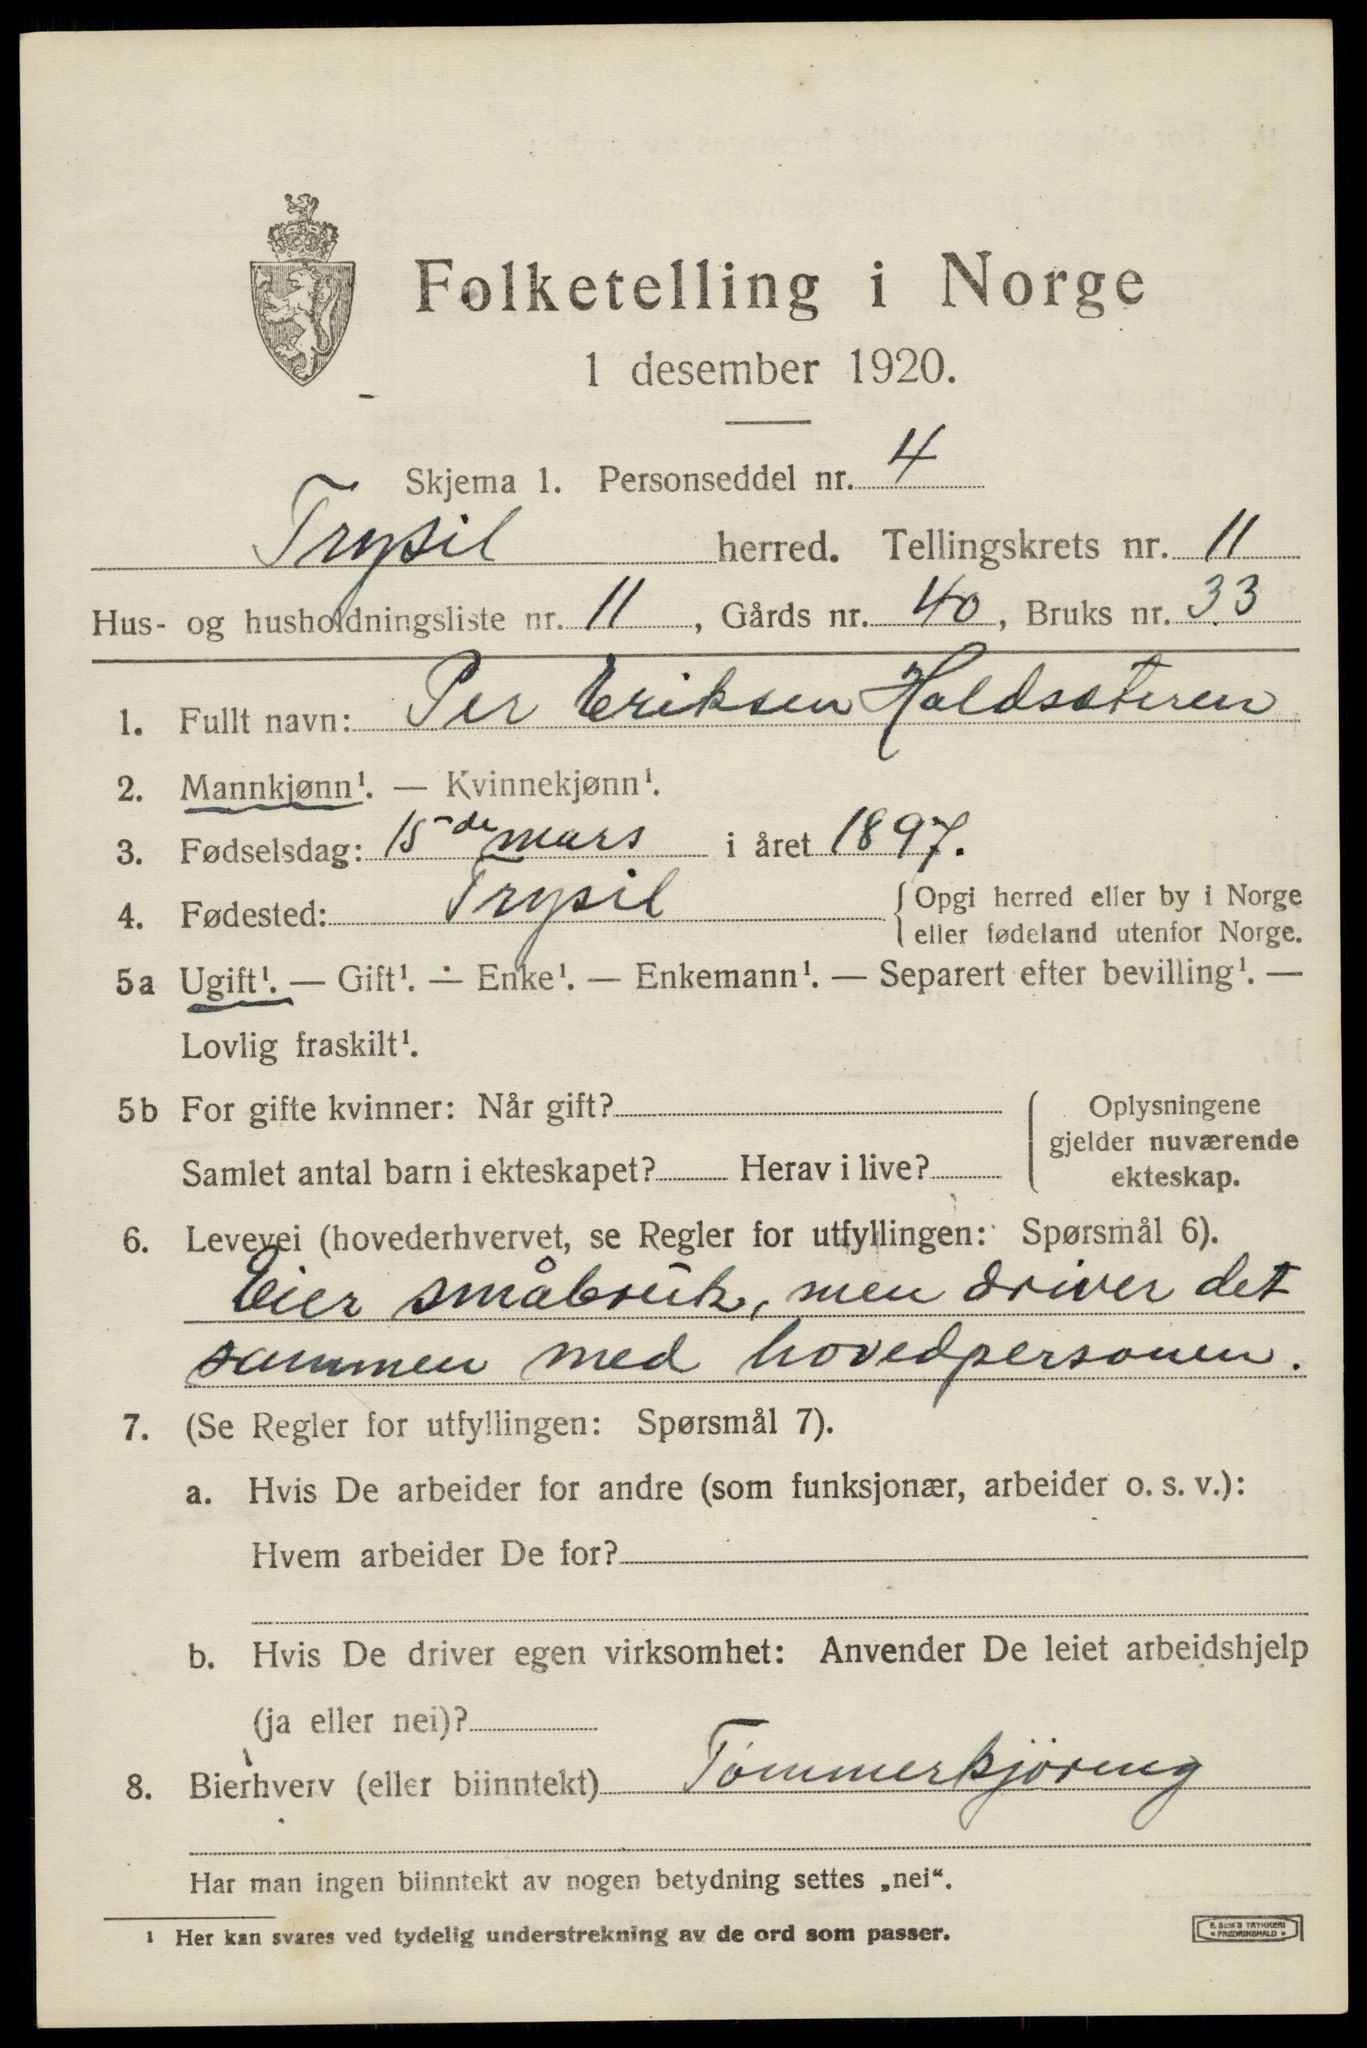 Folketelling i Norge
1 desember 1920.
Skjema 1. Personseddel nr. 4
Trysil herred. Tellingskrets nr. 11
Hus- og husholdningsliste nr. 11, Gårds nr. 40, Bruks nr. 33
1. Fullt navn: Per Eriksen Haldssteren
2. Mannkjønn¹. — Kvinnekjønn¹.
3. Fødselsdag: 15de mars i året 1897.
4. Fødested: Trysil { Opgi herred eller by i Norge
eller fødeland utenfor Norge.
5a Ugift¹. — Gift¹. — Enke¹. — Enkemann¹. — Separert efter bevilling¹. —
Lovlig fraskilt¹.
5b For gifte kvinner: Når gift? { Oplysningene
gjelder nuværende
Samlet antal barn i ekteskapet? Herav i live? ekteskap.
6. Levevei (hovederhvervet, se Regler for utfyllingen: Spørsmål 6).
Eier småbruk, men driver det
sammen med hovedpersonen.
7. (Se Regler for utfyllingen: Spørsmål 7).
a. Hvis De arbeider for andre (som funksjonær, arbeider o. s. v.):
Hvem arbeider De for?
b. Hvis De driver egen virksomhet: Anvender De leiet arbeidshjelp
(ja eller nei)?
8. Bierhverv (eller biinntekt) Tømmerkjøring
Har man ingen biinntekt av nogen betydning settes „nei“.
¹ Her kan svares ved tydelig understrekning av de ord som passer.
E. SEM'S TRYKKERI
• FREDRIKSHALD •